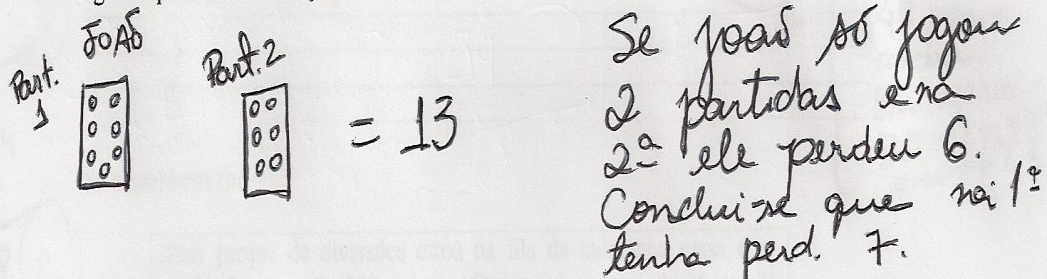 JOÃO
Part. 1
Part. 2
= 13
Se João só jogou
2 partidas e na
2ª ele perdeu 6.
Conclui-se que na 1ª
tenha perd. 7.